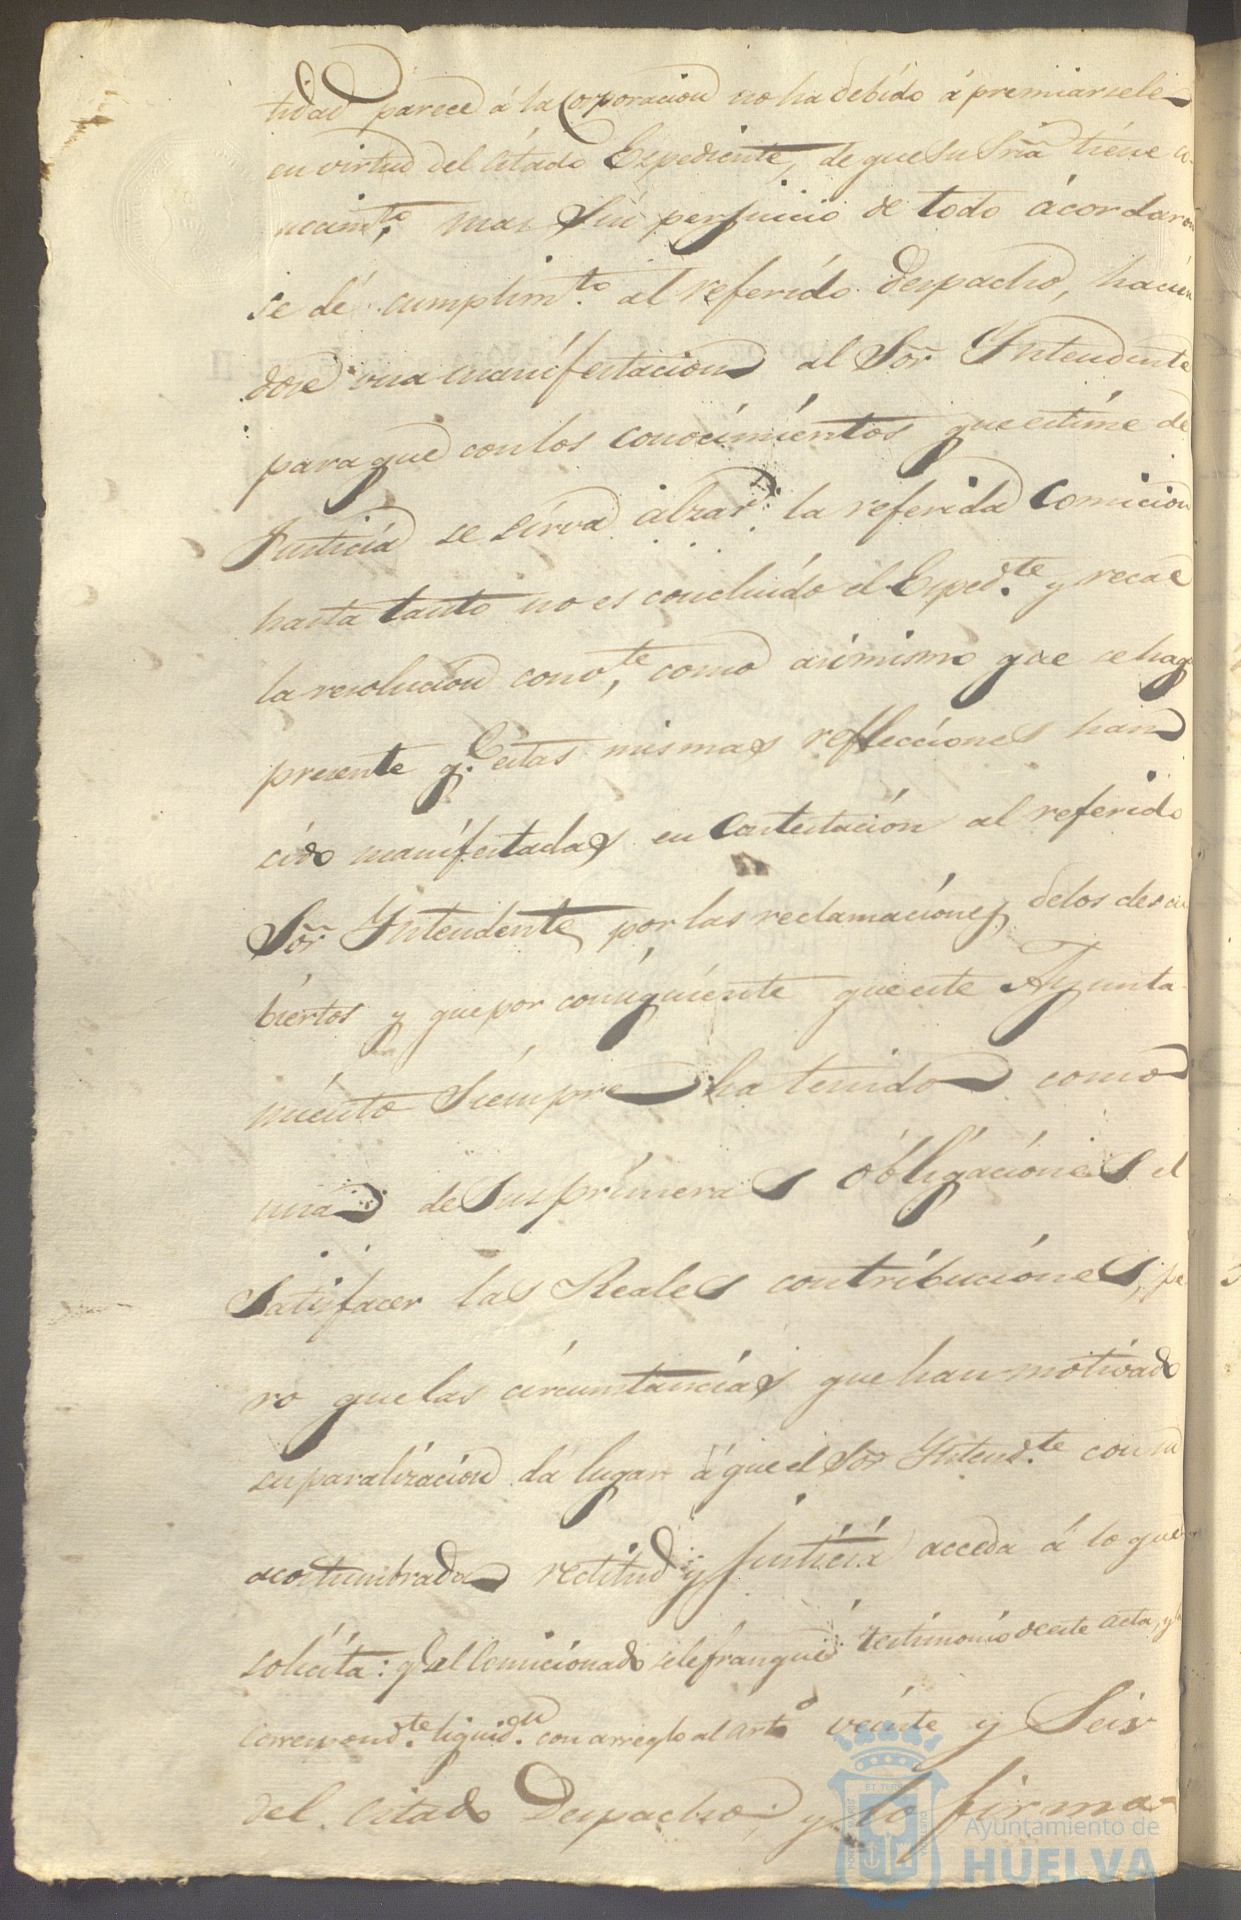 tidad parece á la Corporacion no ha debido ápremiarsele
en virtud del citado Expediente, de que Su Sría tiene co-
nocimto, mas Sin perjuicio de todo ácordaron
se dé cumplimto. al referido Despacho, hacien
dose una manifestacion al Sor Yntendente
para que con los conocimientos que estime de
Justicia se sirva alzar la referida Comicion
hasta tanto no es concluido el Expedte. y recae
la resolucion conte, como asimismo que se haga
presente q.e estas mismas reflecciones han
cido manifestadas en Contestación al referido
Sor Yntendente, por las reclamaciones delos descu
biertos y que por consiguiente que este Ayunta-
miento Siempre ha tenido como
una de Sus primeras óbligaciones el
Satisfacer las Reales contribuciones, pe
ro que las circunstancias que han motivado
su paralizacion dá lugar á que el Sor Yntendte. con su
acostumbrada rectitud y Justicia acceda á lo que
solicita: y al Comicionado sele franqué testimonio de este acta, y la
correspondte. liquidn. con arreglo al arto veinte y Seis
del citado Despacho, y lo firma-
Ayuntamiento de
HUELVA